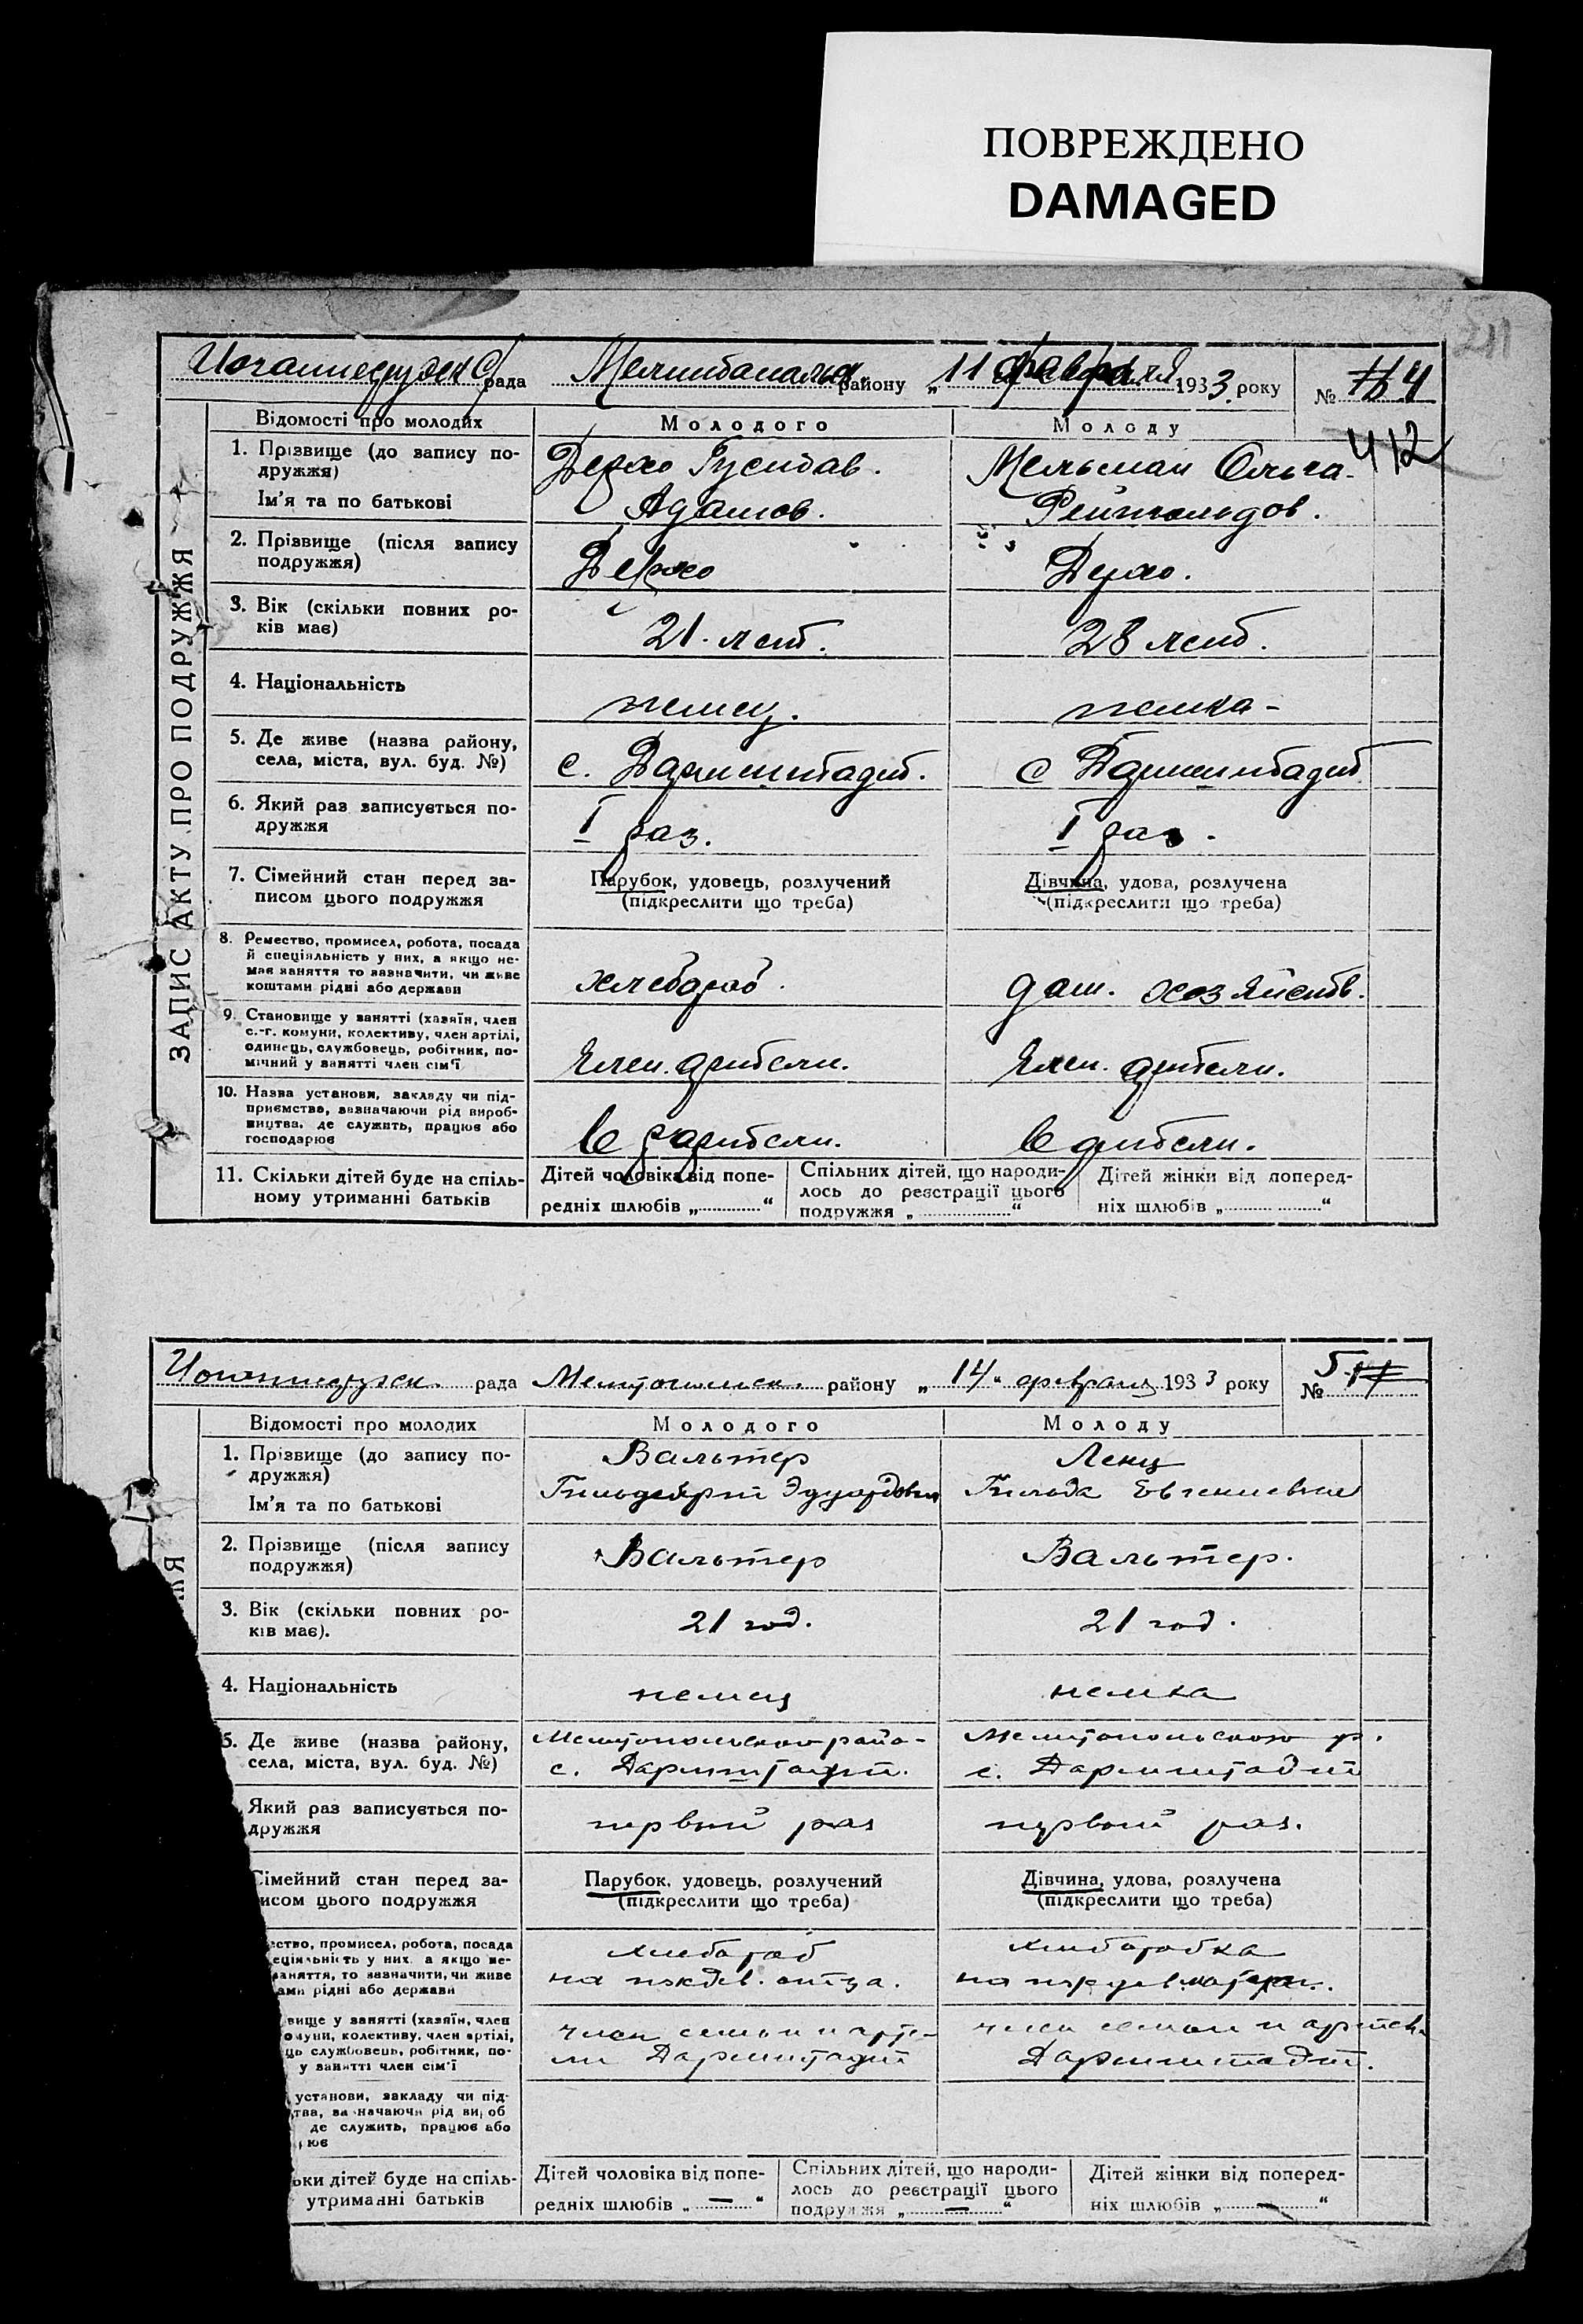 ПОВРЕЖДЕНО
DAMAGED
рада району „11 февраля 1933 року № 4
412
Відомості про молодих Молодого Молоду
1. Прізвище (до запису по-
дружжя)
Густав. Ольга
Ім'я та по батькові
Адамов. Рейнгольдов.
2. Прізвище (після запису
подружжя)
3. Вік (скільки повних ро-
ків має)
21. лет. 28 лет.
4. Національність
немец. немка
5. Де живе (назва району,
села, міста, вул. буд. №)
с. Дармштадт. с Дармштадт
6. Який раз записується по-
дружжя
I раз. I раз.
7. Сімейний стан перед за-
писом цього подружжя
Парубок, удовець, розлучений Дівчина, удова, розлучена
(підкреслити що треба) (підкреслити що треба)
8. Ремество, промисел, робота, посада
й спеціяльність у них, а якщо не-
має заняття то зазначити, чи живе
коштами рідні або держави
хлебороб. дом. хозяйств.
9. Становище у занятті (хазяїн, член
с.-г. комуни, колективу, член артілі,
одинець, службовець, робітник, по-
мічний у занятті член сім'ї
Член. артели. Член. артели.
10. Назва установи, закладу чи під-
приємства, зазначаючи рід вироб-
ництва, де служить, працює або
господарює
в артели. в артели.
11. Скільки дітей буде на спіль-
ному утриманні батьків
Дітей чоловіка від попе-
редніх шлюбів „ “
Спільних дітей, що народи-
лось до реєстрації цього
подружжя „ “
Дітей жінки від поперед-
ніх шлюбів „ “
ЗАПИС АКТУ ПРО ПОДРУЖЖЯ
рада району „14“ февраля 1933 року № 5
Відомості про молодих Молодого Молоду
1. Прізвище (до запису по-
дружжя)
Вальтер Ленц
Ім'я та по батькові
Эдуардович Гильда Евгениевна
2. Прізвище (після запису
подружжя)
Вальтер Вальтер.
3. Вік (скільки повних ро-
ків має).
21 год. 21 год.
4. Національність
немец немка
5. Де живе (назва району,
села, міста, вул. буд. №)
Мелитопольского райо- Мелитопольского р.
с. Дармштадт. с. Дармштадт
Який раз записується по-
дружжя
первый раз первый раз.
Сімейний стан перед за-
исом цього подружжя
Парубок, удовець, розлучений Дівчина, удова, розлучена
(підкреслити що треба) (підкреслити що треба)
ество, промисел, робота, посада
еціяльність у них, а якщо не-
заняття, то зазначити, чи живе
ами рідні або держави
хлебороб хлеборобка
на иждев. отца. на матери.
вище у занятті (хазяїн, член
омуни, колективу, член артілі,
ць службовець, робітник, по-
у занятті член сім'ї
член семьи и арте- член семьи и артели
ли Дармштадт Дармштадт.
установи, закладу чи під-
тва, зазначаючи рід вироб
де служить, працює або
рює
ьки дітей буде на спіль-
утриманні батьків
Дітей чоловіка від попе-
редніх шлюбів „ — “
Спільних дітей, що народи-
лось до реєстрації цього
подружжя „ — “
Дітей жінки від поперед-
ніх шлюбів „ — “